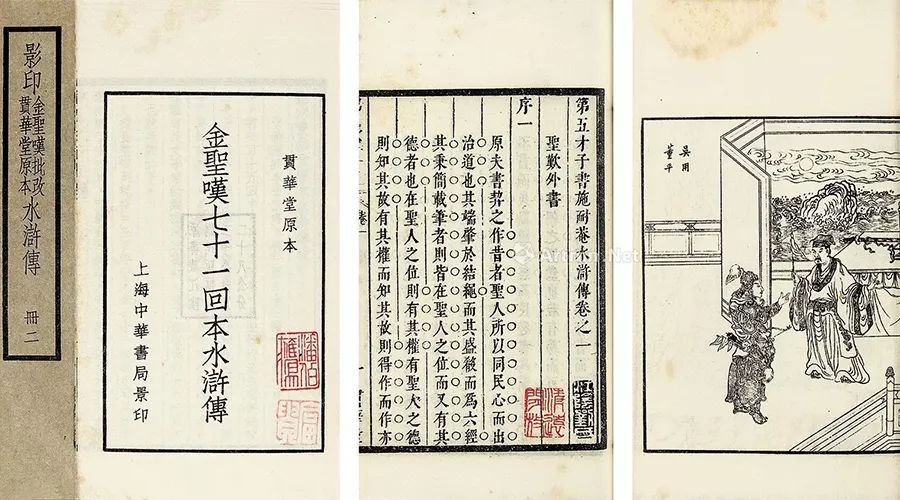 影印
金聖嘆批改
貫華堂原本
水滸傳
冊二
貫華堂原本
金聖嘆七十一回本水滸傳
上海中華書局景印
第五才子書施耐菴水滸傳卷之一
聖歎外書
序一
原夫書契之作昔者聖人所以同民心而出
治道也其端肇於結繩而其盛殽而為六經
其秉簡載筆者則皆在聖人之位而又有其
德者也在聖人之位則有其權有聖人之德
則知其故有其權而知其故則得作而作亦
吳用
董平